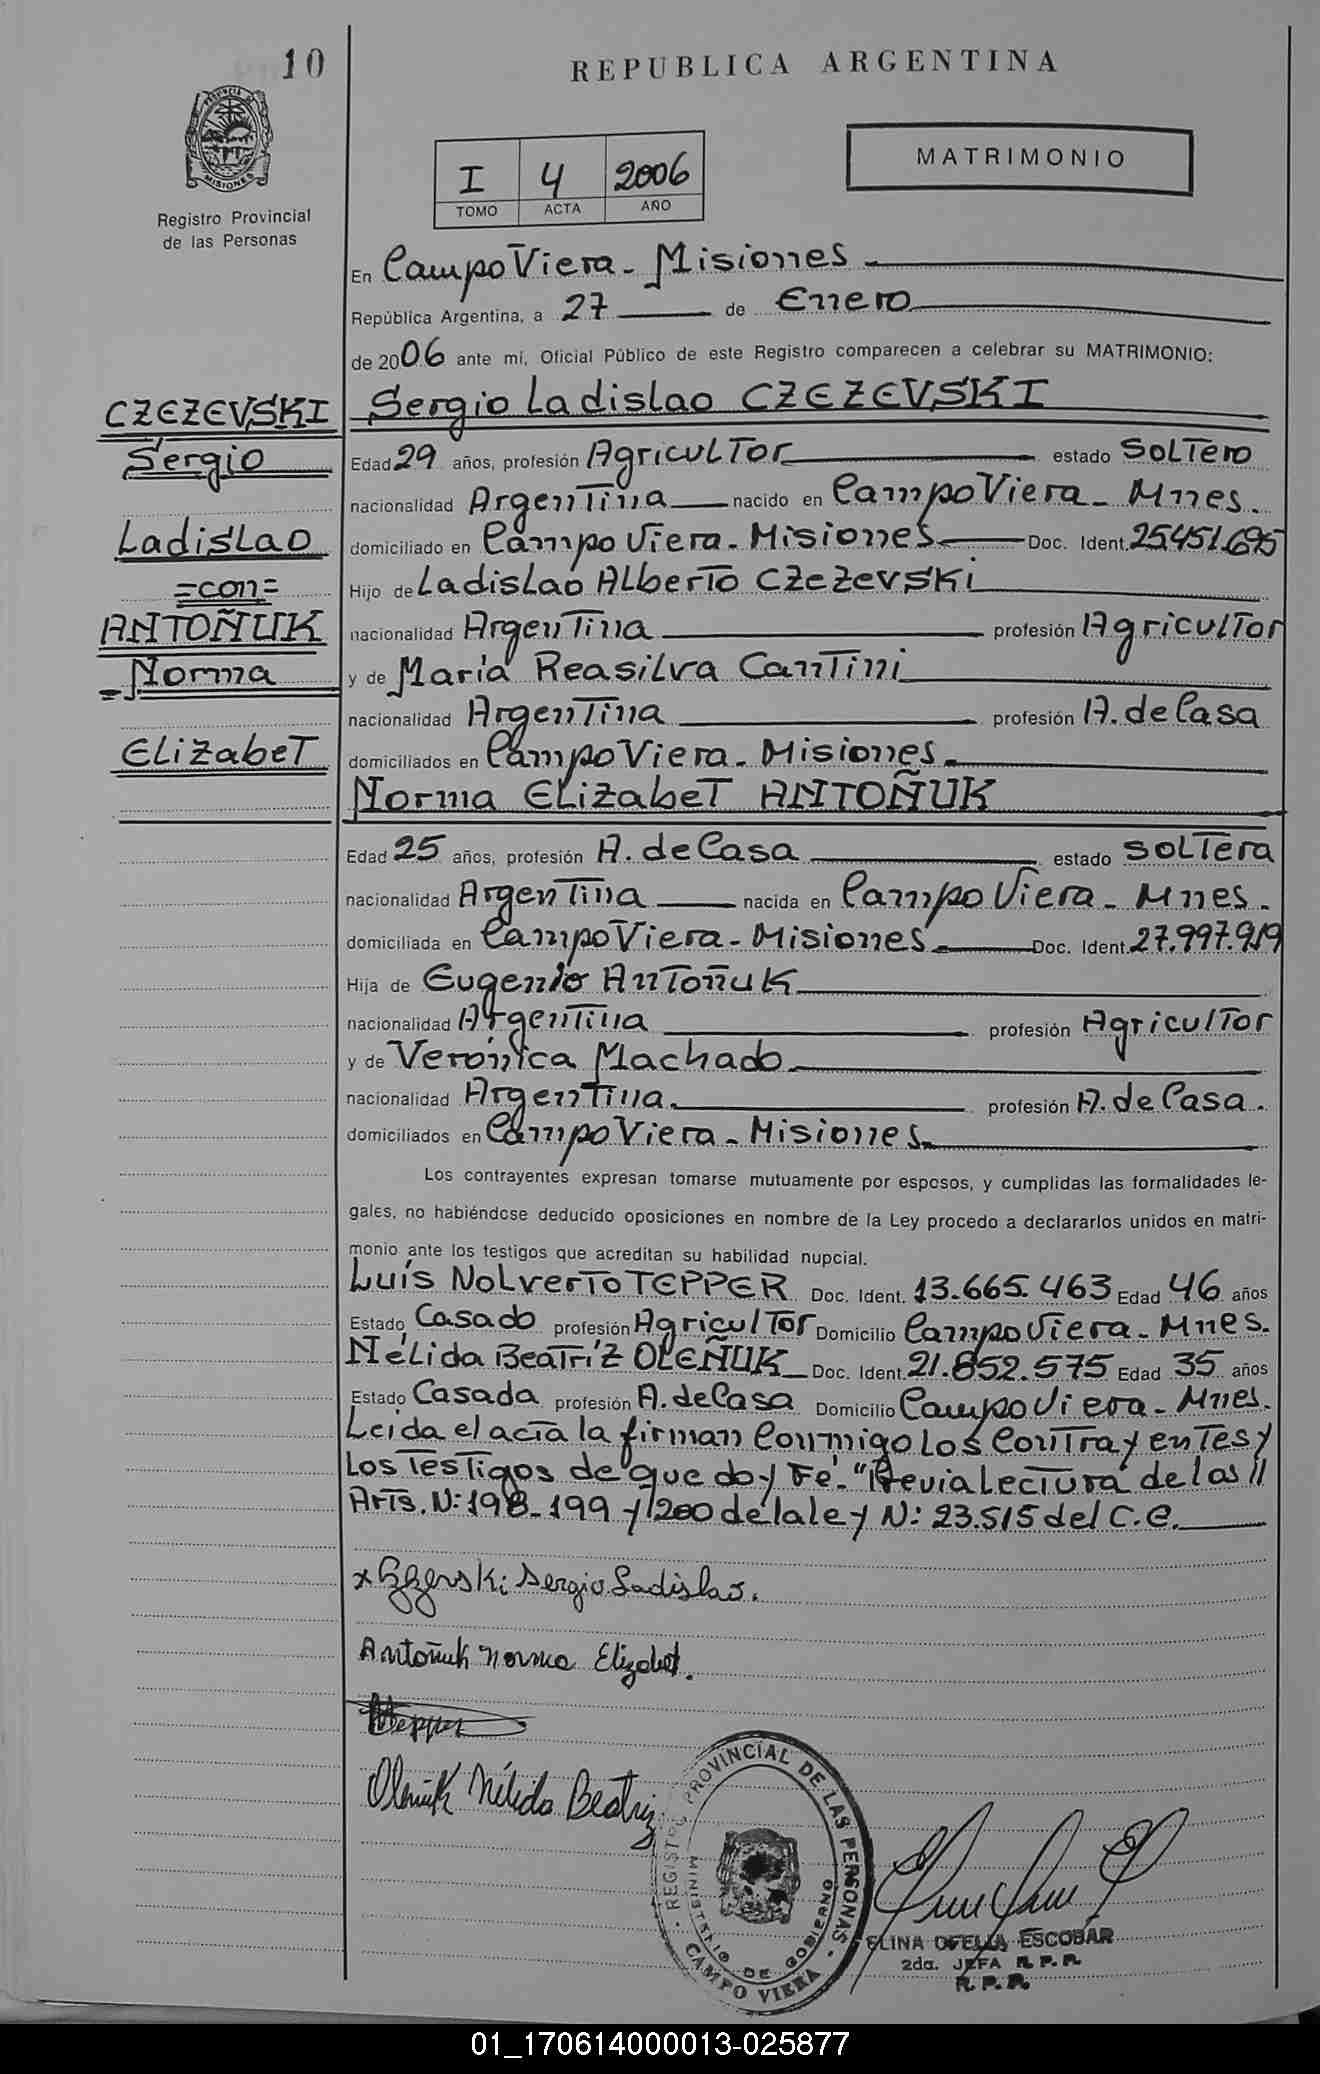 10
REPUBLICA ARGENTINA
PROVINCIA DE MISIONES
Registro Provincial
de las Personas
I 4 2006
TOMO ACTA AÑO
MATRIMONIO
En Campo Viera - Misiones
República Argentina, a 27 de Enero
de 2006 ante mi, Oficial Público de este Registro comparecen a celebrar su MATRIMONIO:
CZEZEVSKI
Sergio
Ladislao
=con=
ANTOÑUK
Norma
Elizabet
Sergio Ladislao CZEZEVSKI
Edad 29 años, profesión Agricultor estado Soltero
nacionalidad Argentina nacido en Campo Viera - Mnes.
domiciliado en Campo Viera - Misiones Doc. Ident. 25.451.695
Hijo de Ladislao Alberto Czezevski
nacionalidad Argentina profesión Agricultor
y de María Reasilva Cantini
nacionalidad Argentina profesión A. de Casa
domiciliados en Campo Viera - Misiones
Norma Elizabet ANTOÑUK
Edad 25 años, profesión A. de Casa estado Soltera
nacionalidad Argentina nacida en Campo Viera - Mnes.
domiciliada en Campo Viera - Misiones Doc. Ident. 27.997.919
Hija de Eugenio Antoñuk
nacionalidad Argentina profesión Agricultor
y de Verónica Machado
nacionalidad Argentina profesión A. de Casa.
domiciliados en Campo Viera - Misiones
Los contrayentes expresan tomarse mutuamente por esposos, y cumplidas las formalidades le-
gales, no habiéndose deducido oposiciones en nombre de la Ley procedo a declararlos unidos en matri-
monio ante los testigos que acreditan su habilidad nupcial.
Luís Nolverto TEPPER Doc. Ident. 13.665.463 Edad 46 años
Estado Casado profesión Agricultor Domicilio Campo Viera - Mnes.
Nélida Beatríz OLEÑUK Doc. Ident. 21.852.575 Edad 35 años
Estado Casada profesión A. de Casa Domicilio Campo Viera - Mnes.
Leida el acta la firman Conmigo Los Contrayentes y
Los Testigos de que doy Fé. "Previa Lectura de las //
Arts. N: 198 - 199 y 200 de la ley N: 23.515 del C.C.
x Czezevski Sergio Ladislao.
Antoñuk Norma Elizabet.
Tepper
Oleñuk Nélida Beatriz
REGISTRO PROVINCIAL DE LAS PERSONAS
MINISTERIO DE GOBIERNO
CAMPO VIERA
ELINA OFELIA ESCOBAR
2da. JEFA R.P.P.
R.P.P.
01_170614000013-025877